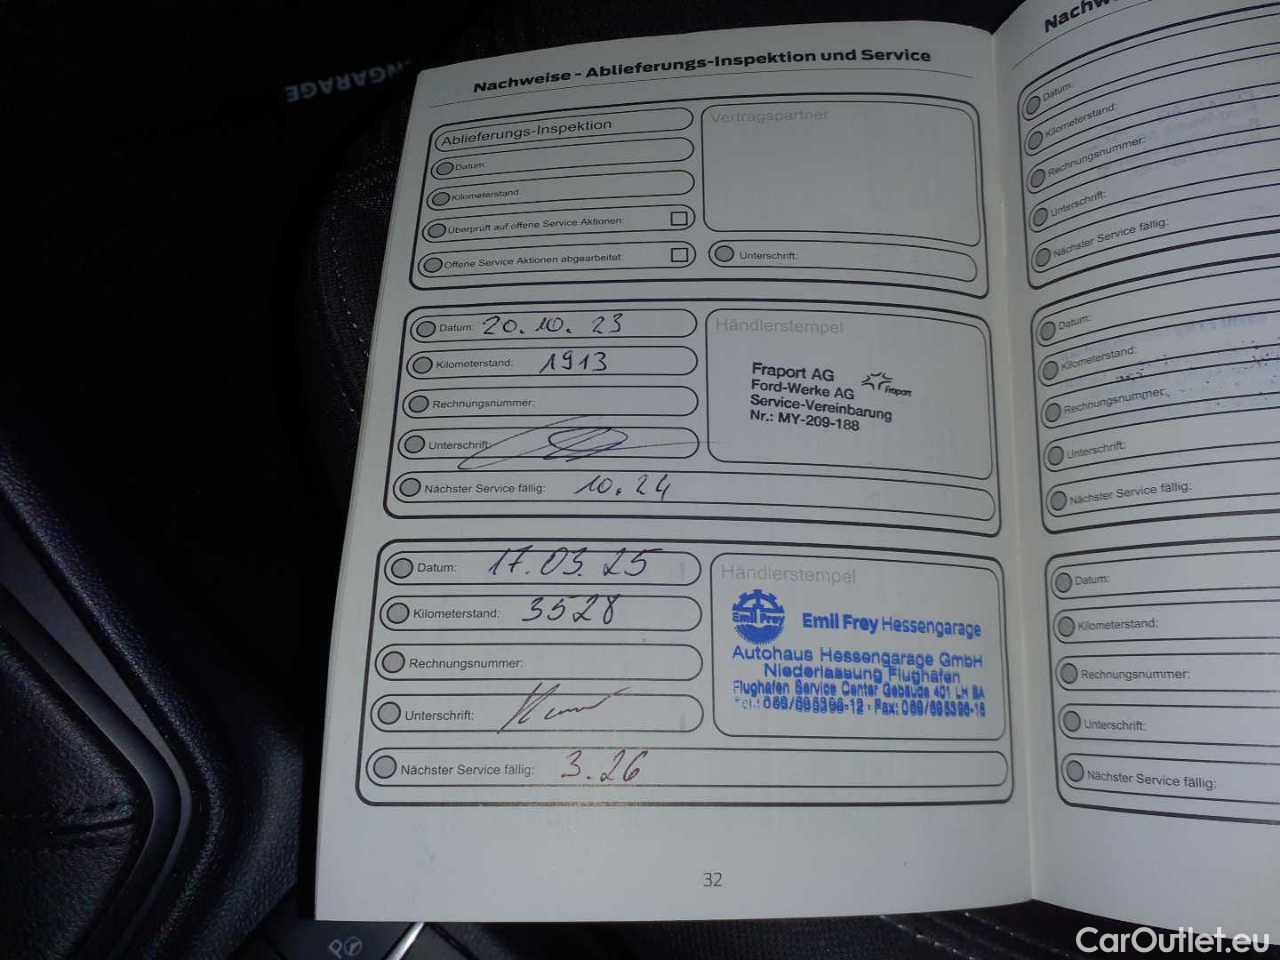 NGARAGE
Nachweise - Ablieferungs-Inspektion und Service
Ablieferungs-Inspektion
Datum:
Kilometerstand
Überprüft auf offene Service Aktionen:
Offene Service Aktionen abgearbeitet:
Vertragspartner
Unterschrift:
Datum: 20.10.23
Kilometerstand: 1913
Rechnungsnummer:
Unterschrift:
Nächster Service fällig: 10.24
Händlerstempel
Fraport AG
Ford-Werke AG
Service-Vereinbarung
Nr.: MY-209-188
Fraport
Datum: 17.03.25
Kilometerstand: 3528
Rechnungsnummer:
Unterschrift:
Nächster Service fällig: 3.26
Händlerstempel
Emil Frey
Emil Frey Hessengarage
Autohaus Hessengarage GmbH
Niederlassung Flughafen
Flughafen Service Center Gebäude 401 LH BA
Tel.: 069/695396-12 · Fax: 069/695396-16
32
Datum:
Kilometerstand:
Rechnungsnummer:
Unterschrift:
Nächster Service fällig:
Datum:
Kilometerstand:
Rechnungsnummer:
Unterschrift:
Nächster Service fällig:
Datum:
Kilometerstand:
Rechnungsnummer:
Unterschrift:
Nächster Service fällig:
P
CarOutlet.eu